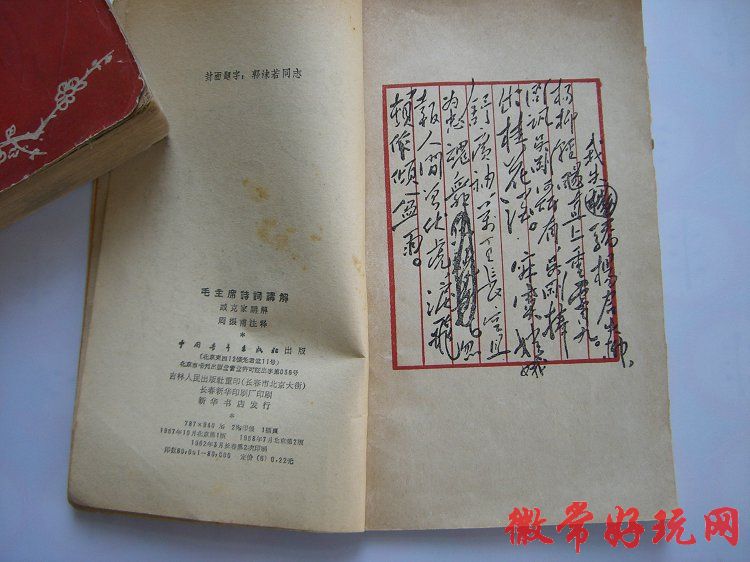 封面题字：郭沫若同志
毛主席詩詞講解
臧克家講解
周振甫注释
*
中国青年出版社出版
(北京东四12條老君堂11号)
北京市书刊出版业营业許可証出字第036号
吉林人民出版社重印(长春市北京大街)
长春新华印刷厂印刷
新华书店发行
*
787×940 2印張 1插頁
1957年10月北京第1版 1958年7月北京第2版
1962年3月长春第2次印刷
印数60,001—80,000 定价(6)0.22元
我失驕楊君失柳，
楊柳輕颺直上重霄九。
问讯吴刚何所有，吴刚捧
出桂花酒。寂寞嫦娥
舒廣袖，萬里長空且
为忠魂舞。忽
報人间曾伏虎，淚飛
頓作傾盆雨。
徽常好玩网